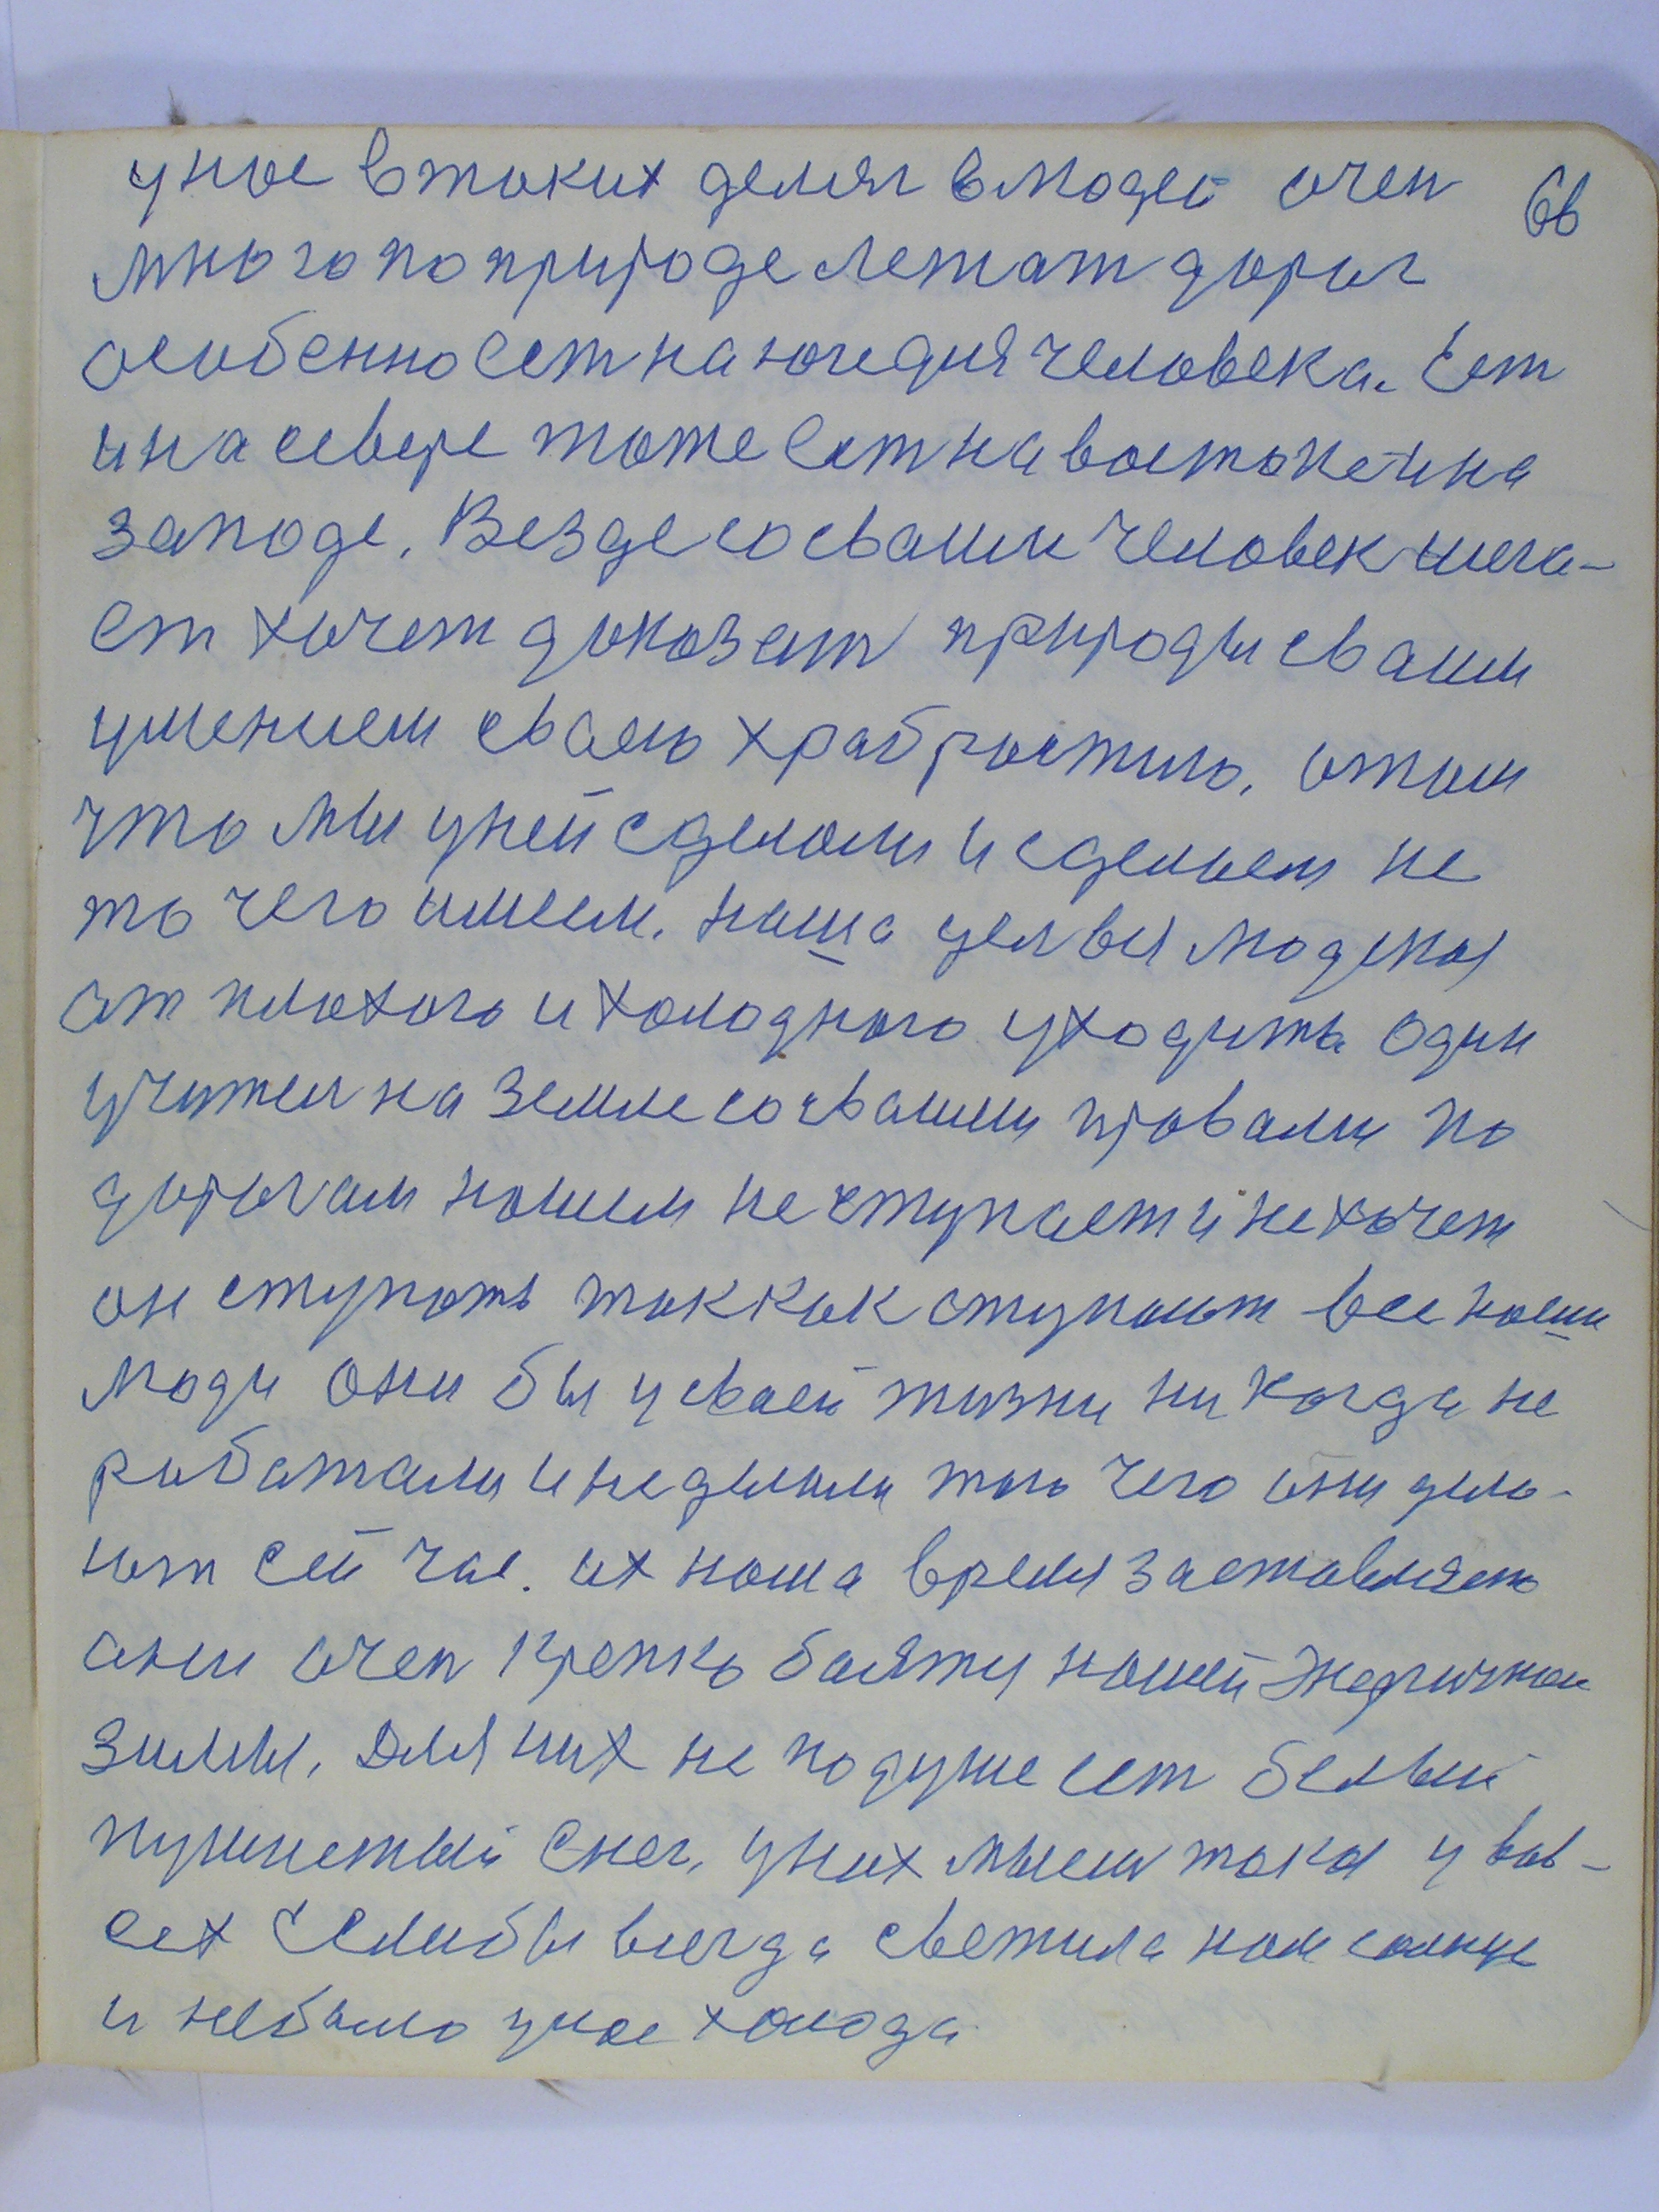 унас в таких делах в людей очен 66
много по природе лежат дорог
особенно ест на юге для человека. Ест
и на севере тоже ест на востоке и на
западе. Везде со сваим человек шага-
ет хочет доказат природы сваим
умением сваею храбростию, отом
что мы у ней сделали и сделаем не
то чего имеем. наша цел вся людская
от плохого и холодного уходить один
учител на земле со сваими правами по
дорогам нашем не ступает и не хочет
он ступать так как ступают все наши
люди они бы у сваей жизни ни когда не
работали и не делали того чего они дела-
ют сей час. их наша время заставляет
они очен крепко баятся нашей энергичной
зимы. Для них не по душе ест белый
пушистый снег, у них мысл такая у вов-
сех Если бы всегда светила нам солнце
и небыло унас холода